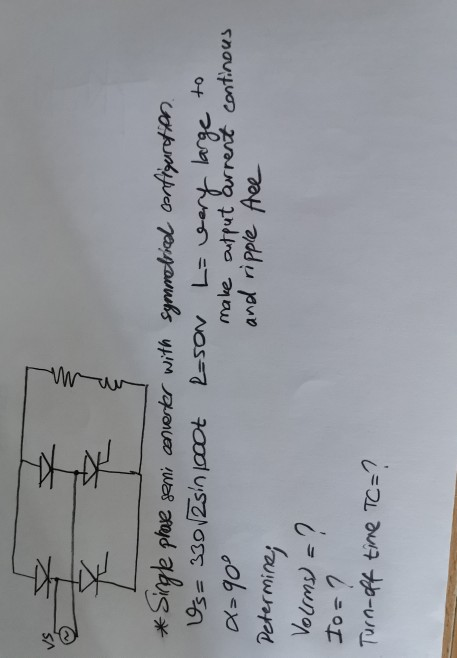 Vs
* Single phase semi converter with symmetrical configuration.
Vs = 330√2 sin 1000t R=50Ω L= very large to
make output current continous
and ripple free
α = 90°
Determine;
Vo(rms) = ?
Io = ?
Turn-off time TC = ?